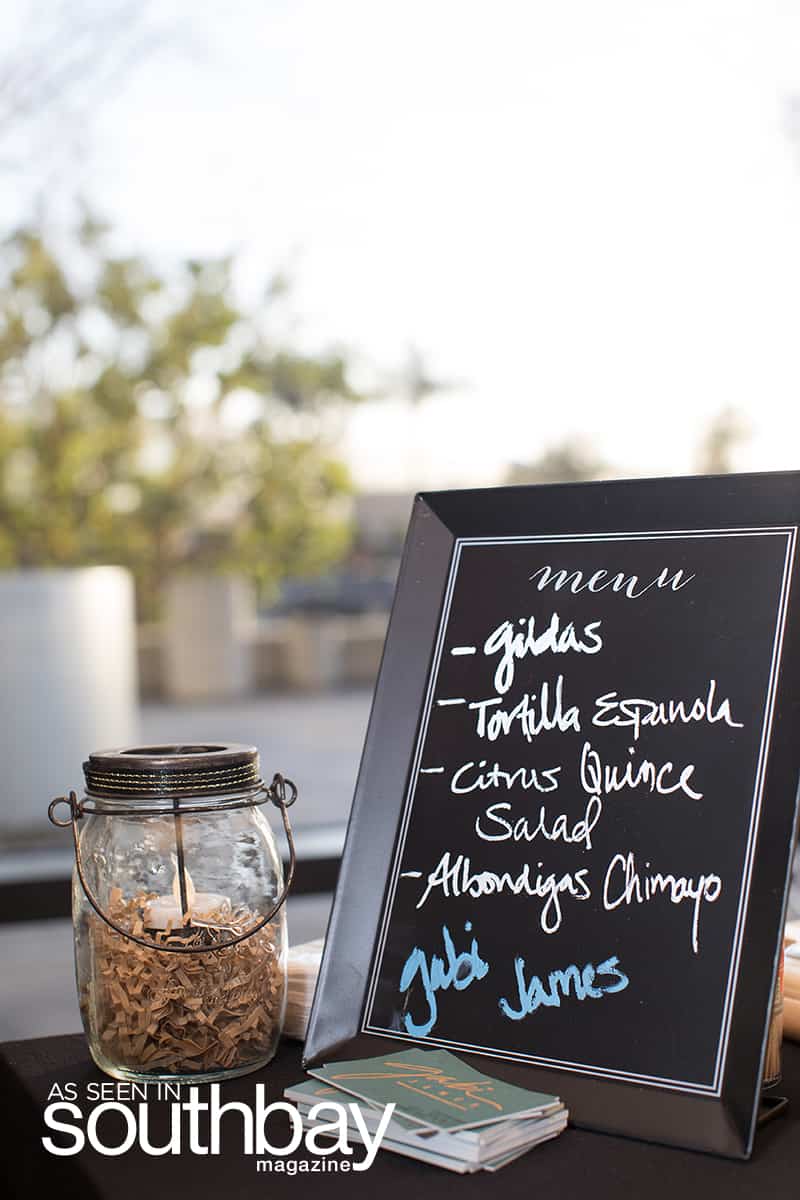 menu
- gildas
- Tortilla Espanola
- Citrus Quince
Salad
- Albondigas Chimayo
gabi James
gabi
JAMES
AS SEEN IN
southbay
magazine